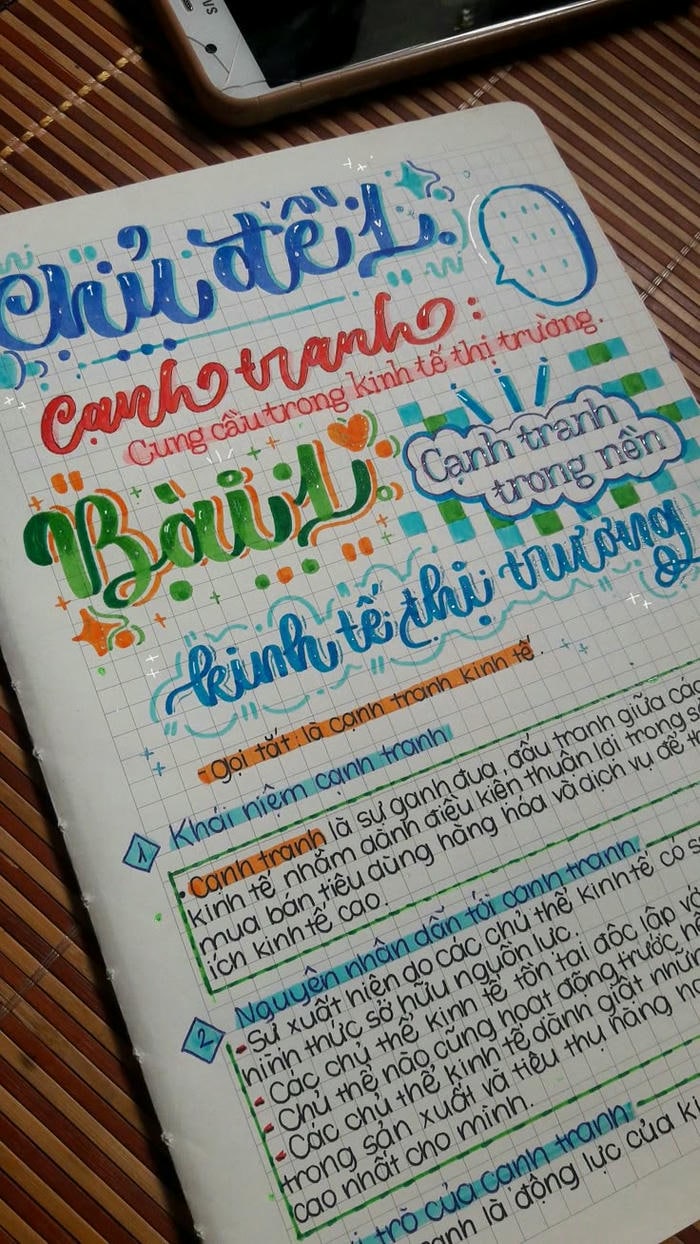 VS
Chủ đề 1.
Cạnh tranh:
Cung cầu trong kinh tế thị trường.
Bài 1
Cạnh tranh
trong nền
kinh tế thị trường
- gọi tắt: là cạnh tranh kinh tế.
1 Khái niệm cạnh tranh
• Cạnh tranh là sự ganh đua, đấu tranh giữa các
kinh tế nhằm dành điều kiện thuận lợi trong
mua bán, tiêu dùng hàng hóa và dịch vụ để
ích kinh tế cao.
2 Nguyên nhân dẫn tới cạnh tranh.
- Sự xuất hiện do các chủ thể kinh tế có
hình thức sở hữu nguồn lực.
- Các chủ thể kinh tế tồn tại độc lập
Chủ thể nào cũng hoạt động trước
- Các chủ thể kinh tế dành giật
trong sản xuất và tiêu thụ hàng
cao nhất cho mình.
trò của cạnh tranh
là động lực của